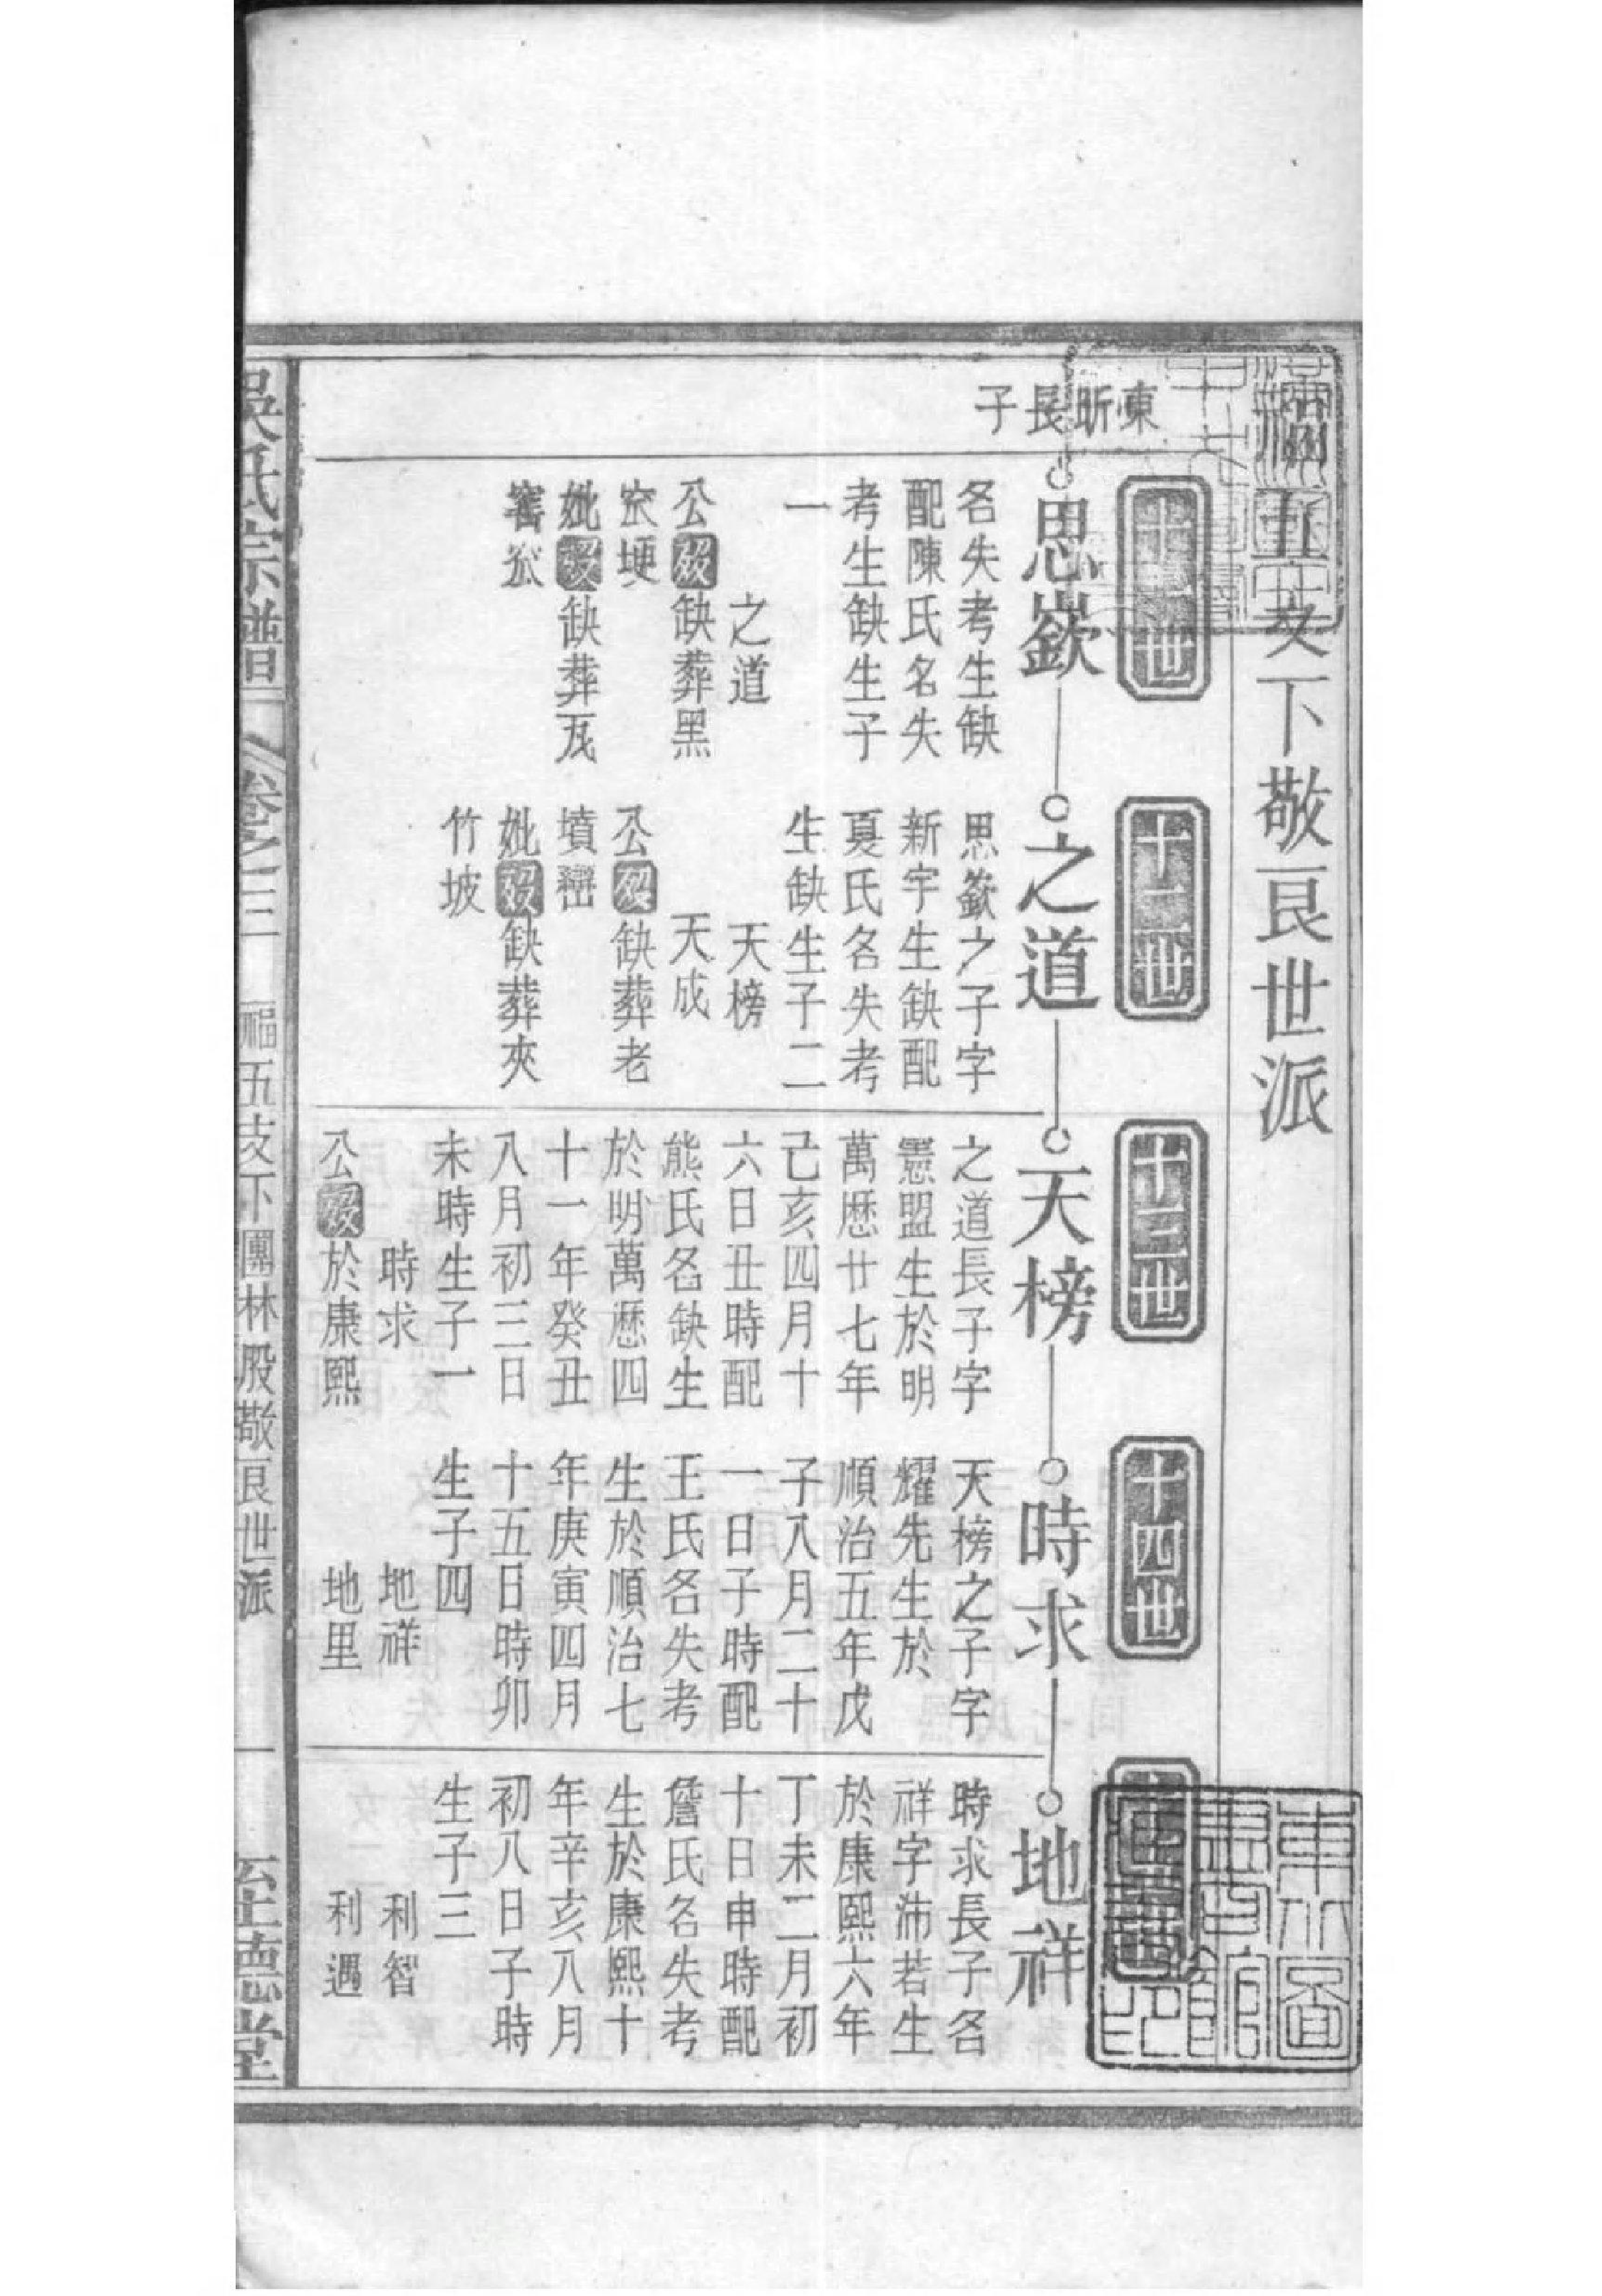 福五支下敬良世派
東昕長子
十一世
思嶔
名失考生缺
配陳氏名失
考生缺生子
一
之道
公歿缺葬黑
妣歿缺葬瓦
窖
十二世
之道
思嶔之子字
新宇生缺配
夏氏名失考
生缺生子二
天榜
天成
公歿缺葬老
墳
妣歿缺葬夾
竹坡
十三世
天榜
之道長子字
憲盟生於明
萬歷廿七年
己亥四月十
六日丑時配
熊氏名缺生
於明萬歷四
十一年癸丑
八月初三日
未時生子一
時求
公歿於康熙
十四世
時求
天榜之子字
耀先生於
順治五年戊
子八月二十
一日子時配
王氏名失考
生於順治七
年庚寅四月
十五日時卯
生子四
地祥
地里
地祥
時求長子名
祥字沛若生
於康熙六年
丁未二月初
十日申時配
詹氏名失考
生於康熙十
年辛亥八月
初八日子時
生子三
利智
利遇
吳氏宗譜
卷之三
福五支下團林股敬良世派
一
至德堂